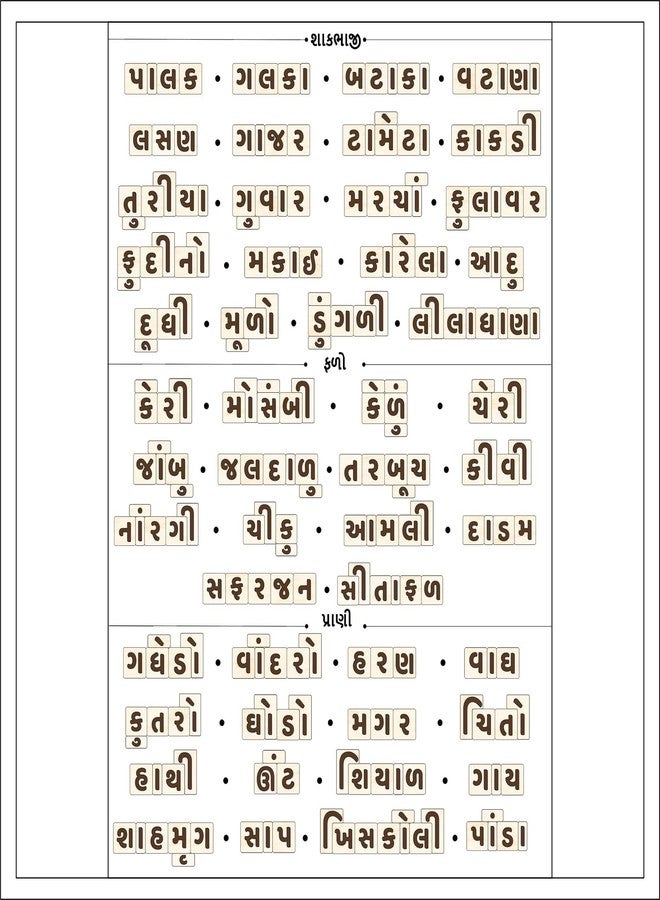 શાકભાજી
પાલક • ગલકા • બટાકા • વટાણા
લસણ • ગાજર • ટામેટા • કાકડી
તુરીયા • ગુવાર • મરચાં • ફુલાવર
ફુદીનો • મકાઈ • કારેલા • આદુ
દૂધી • મૂળો • ડુંગળી • લીલાધાણા
ફળો
કેરી • મોસંબી • કેળું • ચેરી
જાંબુ • જલદાળુ • તરબૂચ • કીવી
નાંરગી • ચીકુ • આમલી • દાડમ
સફરજન • સીતાફળ
પ્રાણી
ગધેડો • વાંદરો • હરણ • વાઘ
કુતરો • ઘોડો • મગર • ચિતો
હાથી • ઊંટ • શિયાળ • ગાય
શાહમૃગ • સાપ • ખિસકોલી • પાંડા